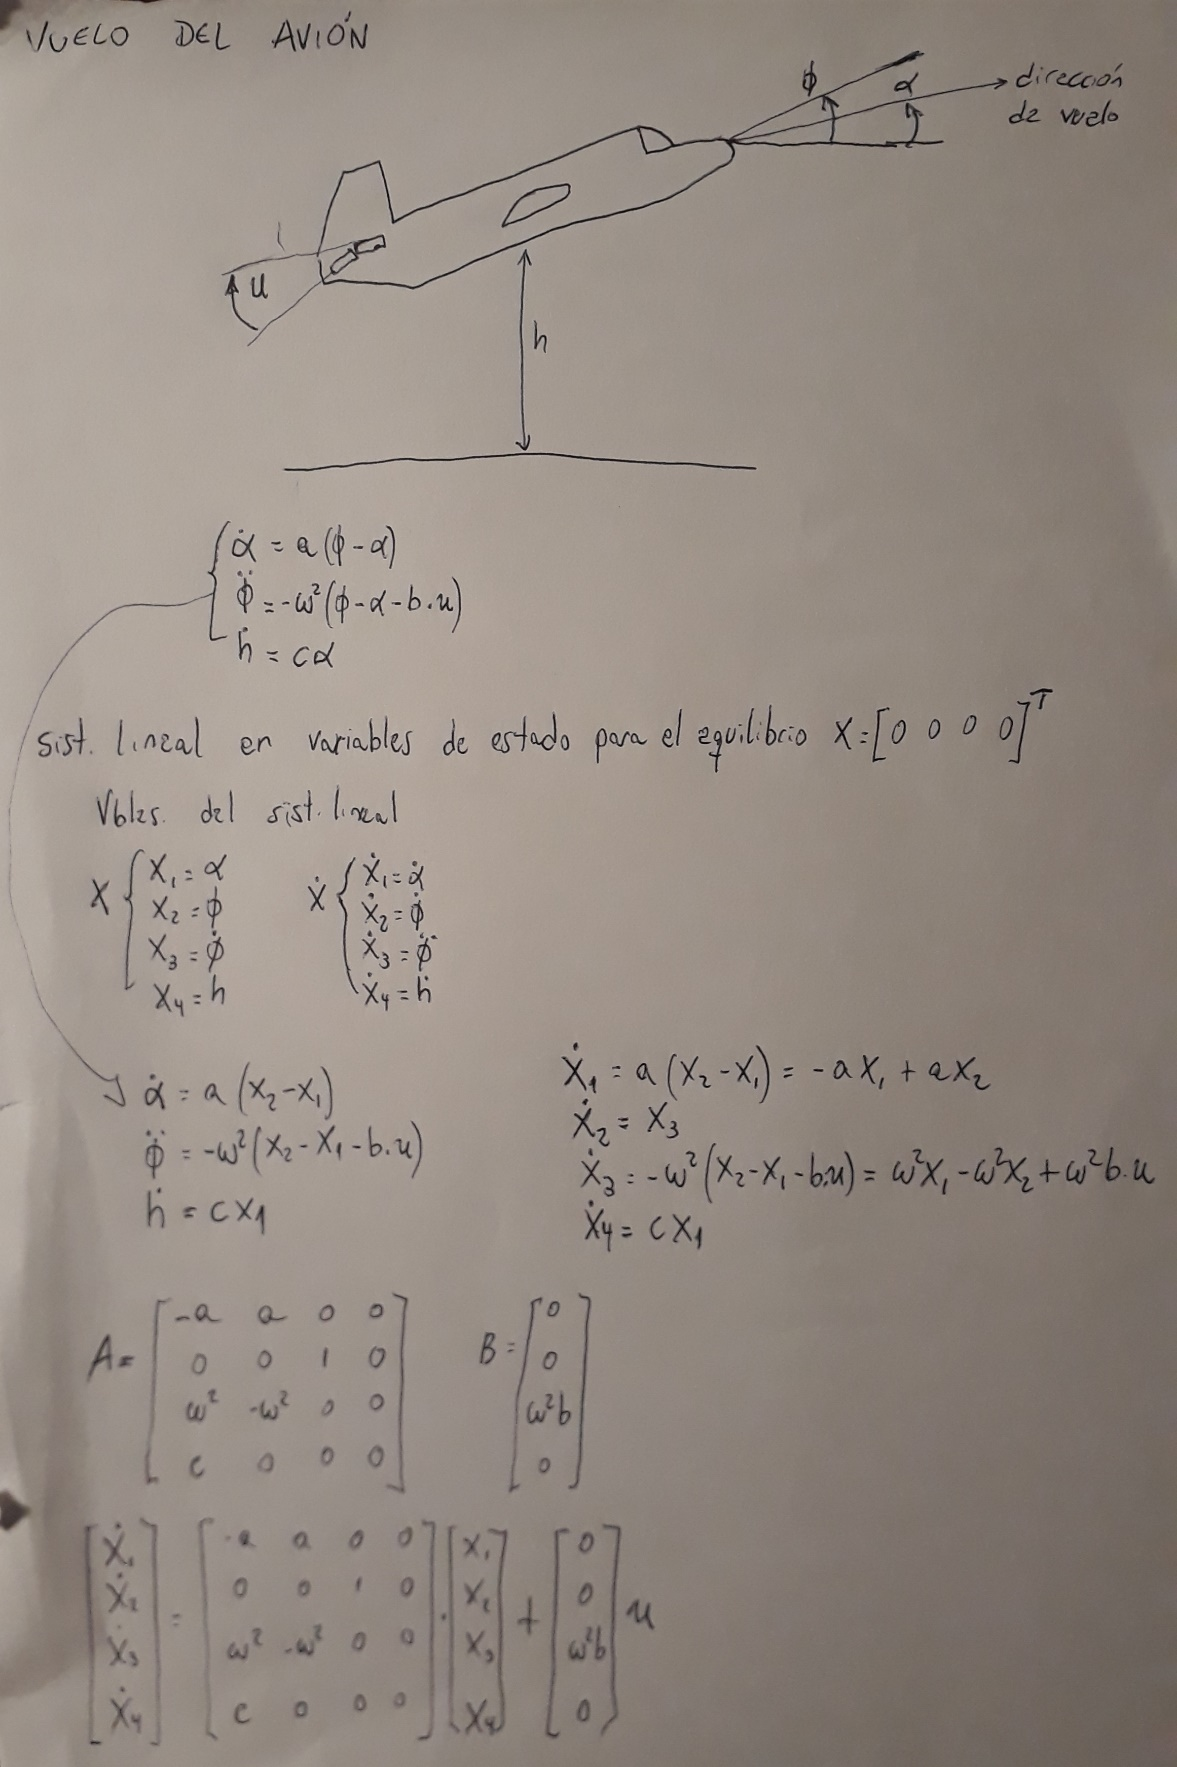 VUELO DEL AVIÓN
ϕ α dirección
de vuelo
u
h
α̇ = a(ϕ-α)
ϕ̈ = -ω²(ϕ-α-b.u)
ḣ = cα
sist. lineal en variables de estado para el equilibrio X=[0 0 0 0]ᵀ
Vbles. del sist. lineal
X { X₁ = α
X₂ = ϕ
X₃ = ϕ̇
X₄ = h
Ẋ { Ẋ₁ = α̇
Ẋ₂ = ϕ̇
Ẋ₃ = ϕ̈
Ẋ₄ = ḣ
α̇ = a(X₂-X₁)
ϕ̈ = -ω²(X₂-X₁-b.u)
ḣ = cX₁
Ẋ₁ = a(X₂-X₁) = -aX₁ + aX₂
Ẋ₂ = X₃
Ẋ₃ = -ω²(X₂-X₁-b.u) = ω²X₁-ω²X₂+ω²b.u
Ẋ₄ = cX₁
A= [ -a a 0 0
0 0 1 0
ω² -ω² 0 0
c 0 0 0 ]
B= [ 0
0
ω²b
0 ]
[ Ẋ₁ Ẋ₂ Ẋ₃ Ẋ₄ ] = [ -a a 0 0
0 0 1 0
ω² -ω² 0 0
c 0 0 0 ] . [ X₁ X₂ X₃ X₄ ] + [ 0 0 ω²b 0 ] u